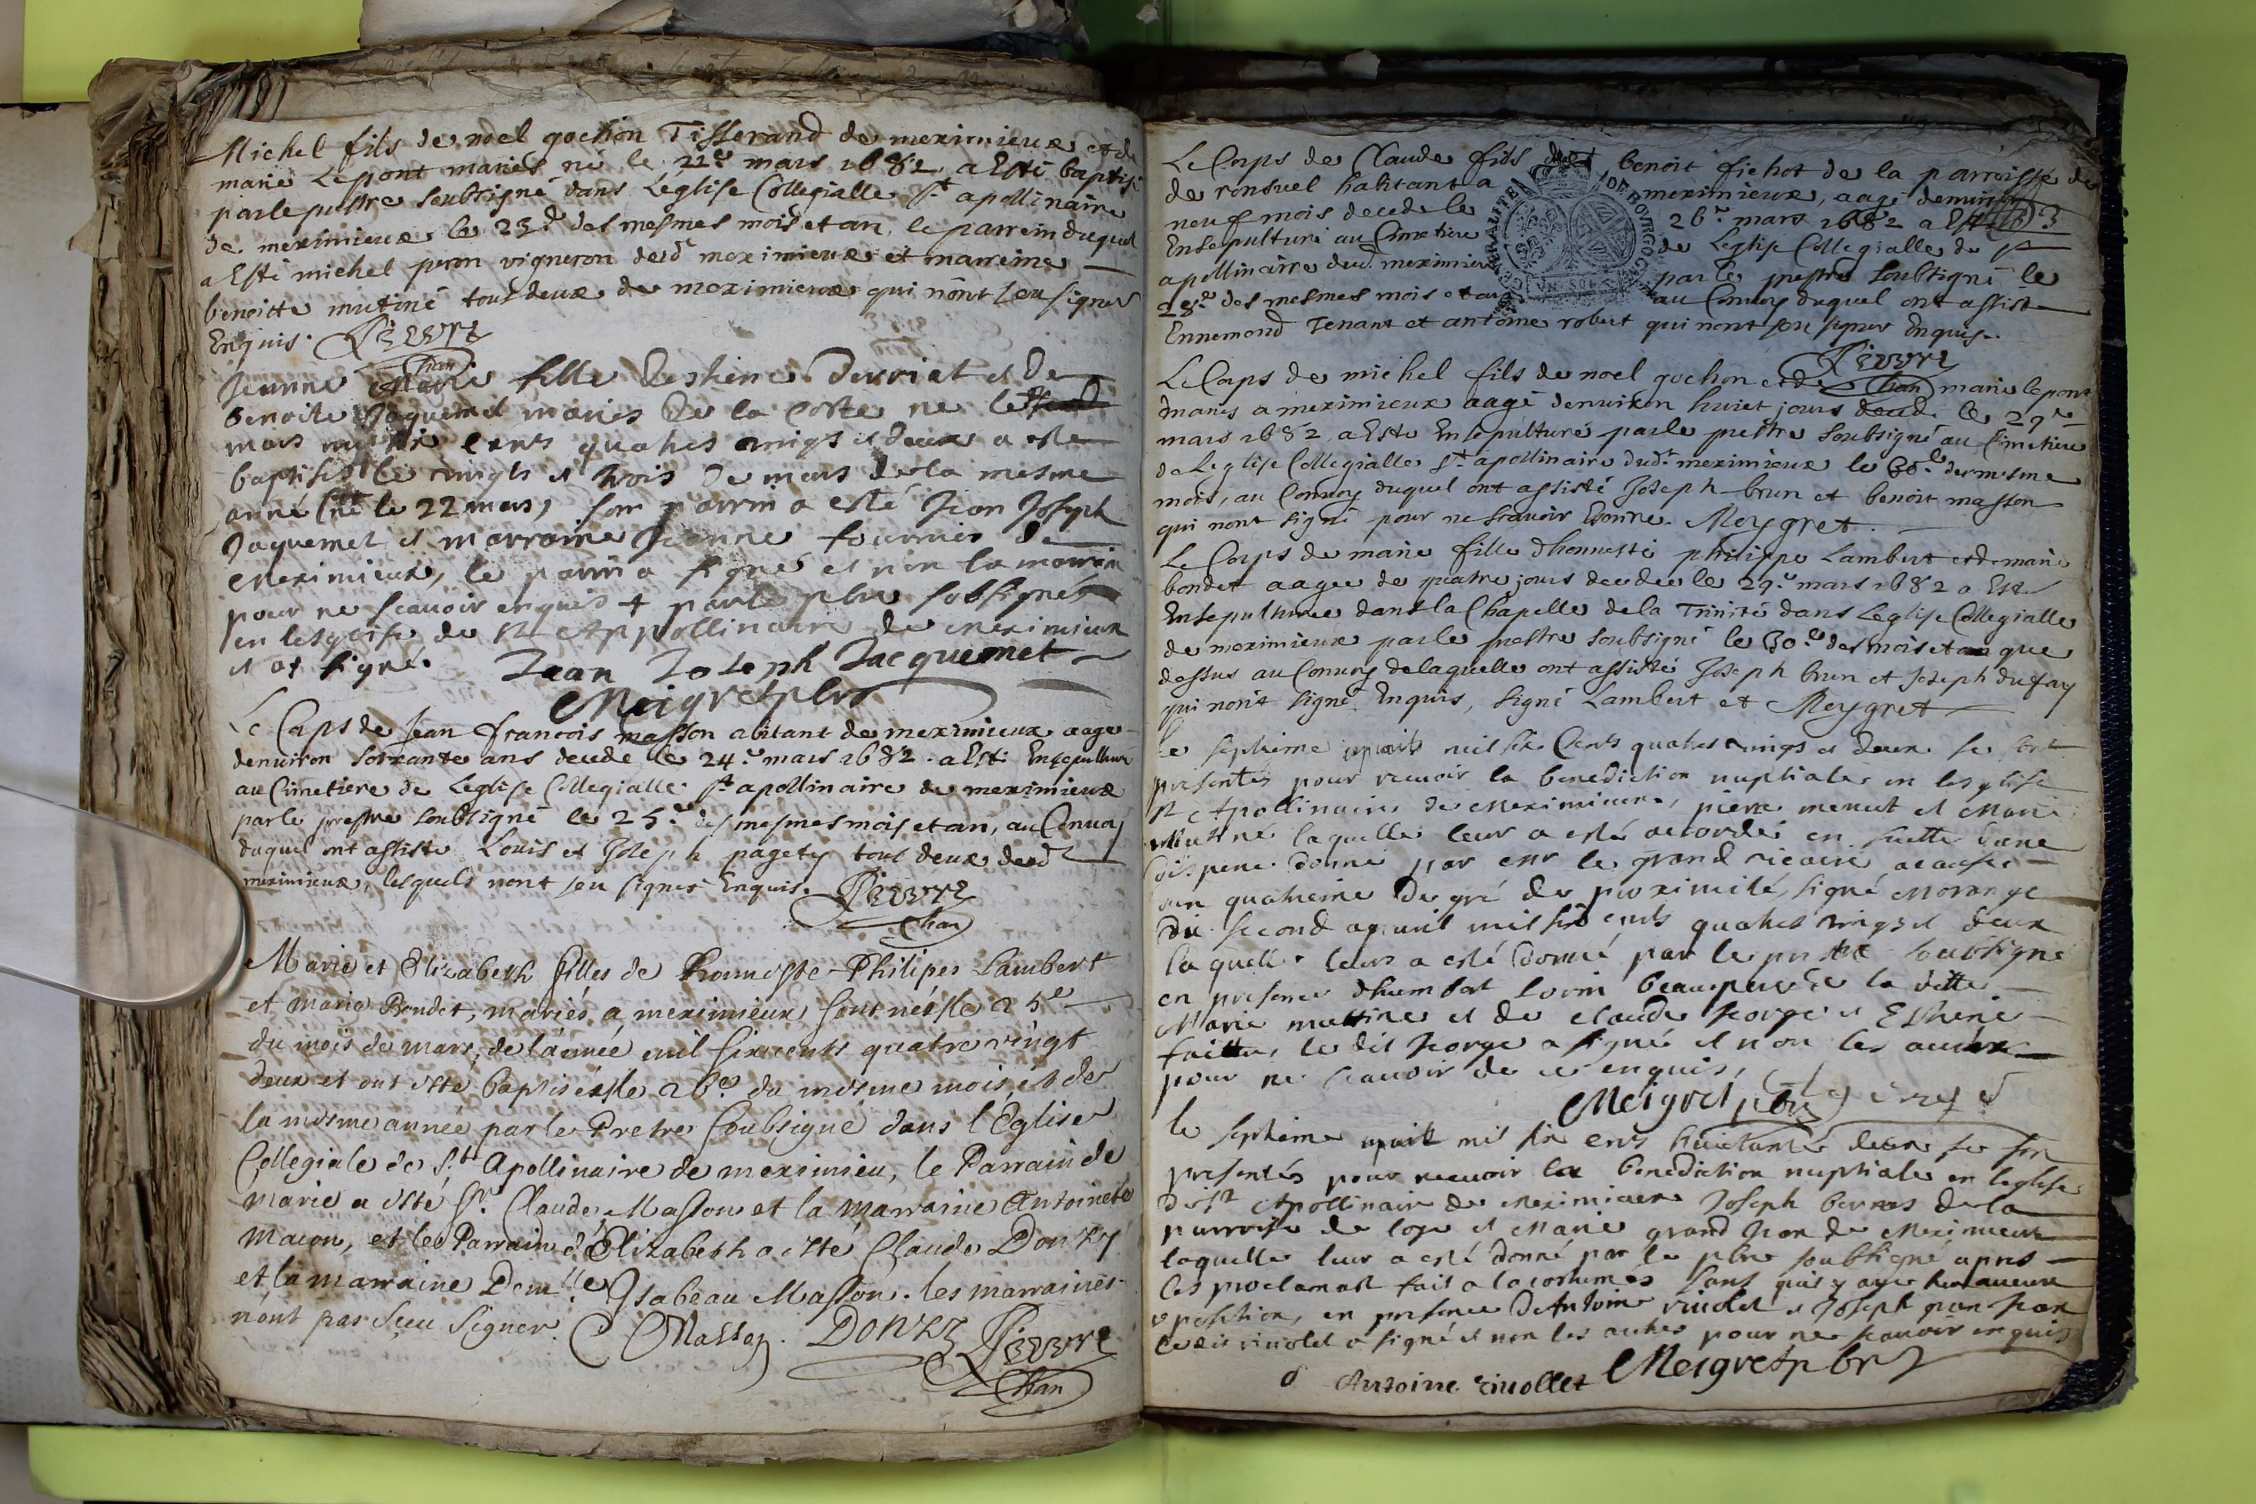 Michel fils de noel gochon Tisserand de meximieux et de
marie Lepont mariés né le 22e mars 1682 a Esté baptisé
parle prestre soubsigné dans Leglise Collegialle St apollinaire
de meximieux le 23e des mesmes mois et an, le parrein duquel
a Esté michel peron vigneron dud meximieux et marreine
benoitte mutiné tous deux de meximieux qui n'ont seu signer
Enquis. Fievre
Chan
Jeanne Marie fille Desthiene Derriat et De
benoite Jaquemet mariés De la Coste ne le
mars mil six cents quatres vingts et deux a este
baptisé le vingts et trois De mars de la mesme
anné (né le 22 mars) son parrin a esté Jean Joseph
Jaquemet et marraine Jeanne fournier de
Meximieux, le parrin a signé et non la marraine
pour ne scavoir enquis + par le pbre sobsigné
en lesglise de St Appollinaire de Meximieux
et at signé. Jean Joseph Jacquemet
Meigret pbr
Le Corps de Jean francois masson abitant de meximieux aage
denuiron soixante ans decede le 24e mars 1682. a Esté Ensepulturé
au Cimetiere de Leglise Collegialle St apollinaire de meximieux
parle prestre soubsigné le 25e des mesmes mois et an, au Conuoy
duquel ont assisté Louis et Joseph pagety tous deux dud
meximieux, lesquels n'ont seu signer Enquis. Fievre
Chan
Marie et Elizabeth filles de honneste Philipes Lambert
et marie Bondet, mariés a meximieux sont nés le 25e
du mois de mars, de l'année mil six cents quatre vingt
deux et ont esté baptisés le 26e du mesme mois, et de
la mesme année par le Pretre soubsigné dans l'Eglise
Collegiale de St Apollinaire de meximieu, le Parrain de
marie a esté Sr. Claude Masson et la marraine Antoinete
macon, et le Parrain d'Elizabeth a esté Claude Donzy
et la marraine Demlle Isabeau Masson. les marraines
n'ont pas seeu signer. C Masson. DONZY Fievre
Chan
Le Corps de Claude fils de benoit fichot de la parroisse de
de ronsuel habitant a meximieux, aagé denuiron
neuf mois decede le 26e mars 1682 a Esté
Ensepulturé au Cimetiere de Leglise Collegialle de St
apollinaire dud. meximieux par le prestre soubsigné le
28e des mesmes mois et an au Conuoy duquel ont assisté
Ennemond Tenant et antoine robert qui n'ont seu signer Enquis.
GENERALITE DE BOVRGOGNE
VN SOL
Fievre
Chan
Le Corps de michel fils de noel gochon et de marie lepont
mariés a meximieux aagé denuiron huict jours deced. le 29e
mars 1682 a Esté Ensepulturé parle prestre soubsigné au Cimetiere
de Leglise Collegialle St apollinaire dudt meximieux le 30e du mesme
mois, au Conuoy duquel ont assisté Joseph brun et benoit masson
qui n'ont signé pour ne scavoir Meygret.
Le Corps de marie fille dhonneste philippe Lambert et de marie
bondet aagee de quatre jours decedee le 29e mars 1682 a Esté
Ensepulturee dans la Chapelle de la Trinité dans Leglise Collegialle
de meximieux parle prestre soubsigné le 30e des mois et an que
dessus au Conuoy de laquelle ont assisté Joseph brun et Joseph dufay
qui n'ont signé Enquis, signé Lambert et Meygret
le septieme april mil six Cents quatres vings et deux se sont
presentés pour recevoir la benediction nuptiale en lesglise
St Apollinaire de Meximieux, piere menut et Marie
Mutine laquelle leur a esté acordée en suitte dune
dispence donné par mr le grand vicaire acause
dun quatrieme Degré de proximité, signé Morange
Du second apuril mil six cents quatres vings et deux
laquelle leurs a esté donné par le prestre soubsigné
en presence dhumbert Lorin beaupere de la ditte
Marie muttine et de Claude George et Esthiene
faitte, le dit George a signé et non les autres
pour ne scauoir de ce enquis,
Meigret pbr
le septieme april mil six cents huictante deux se son
presentés pour recevoir la benediction nuptiale en leglise
de St Apollinaire de Meximieux Joseph bernos de la
parroise de loye et Marie grand Jean de Meximieux
laquelle leur a esté donné par le pbre soubsigné apres
les proclamast fait a la costumés sans quis y aye heu aucune
oposition, en presence de Antoine rivolet et Joseph gran Jean
le dit rivolet a signé et non les autres pour ne scavoir enquis
Antoine rivollet Meigret pbr